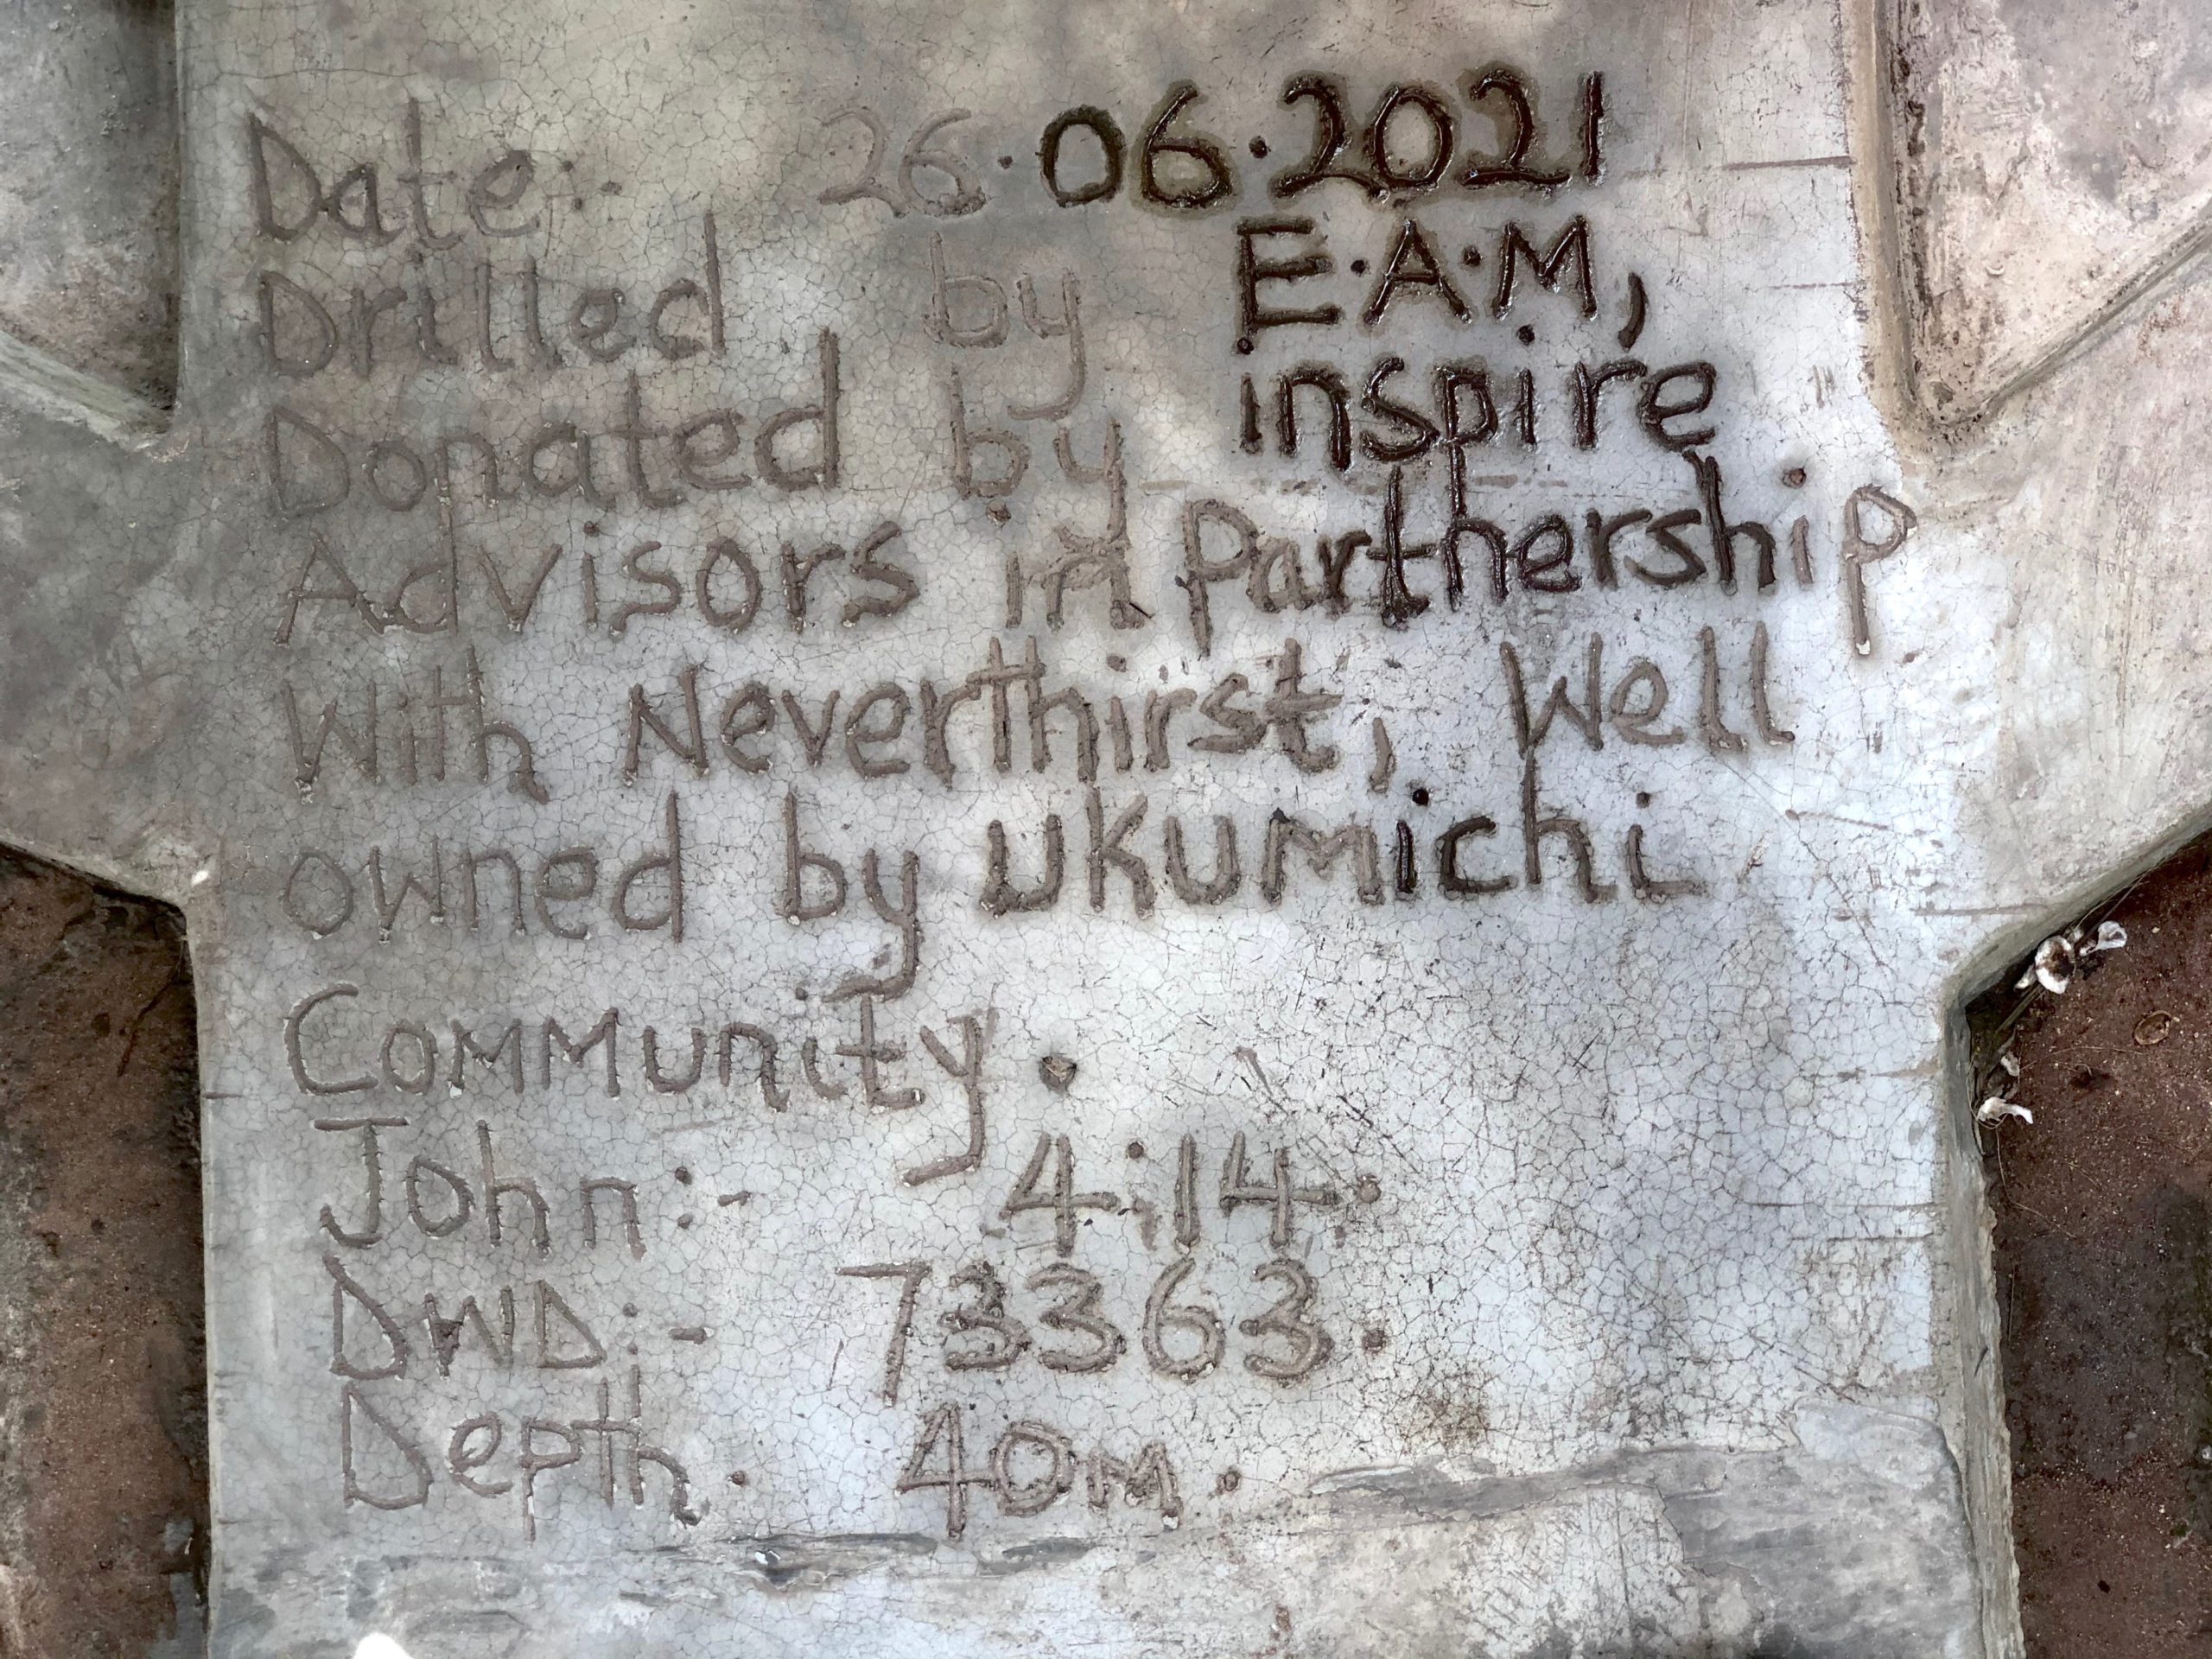 Date: 26.06.2021
Drilled by E.A.M,
Donated by inspire
Advisors in Partnership
With Neverthirst, Well
owned by Ukumichi
Community.
John:- 4:14.
DWD:- 73363.
Depth. 40M.